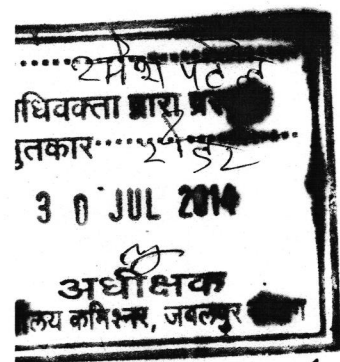 रमेश पटेल
धिवक्ता द्वारा प्रस्
तकार
30 JUL 2014
अधीक्षक
लय कमिश्नर, जबलपुर